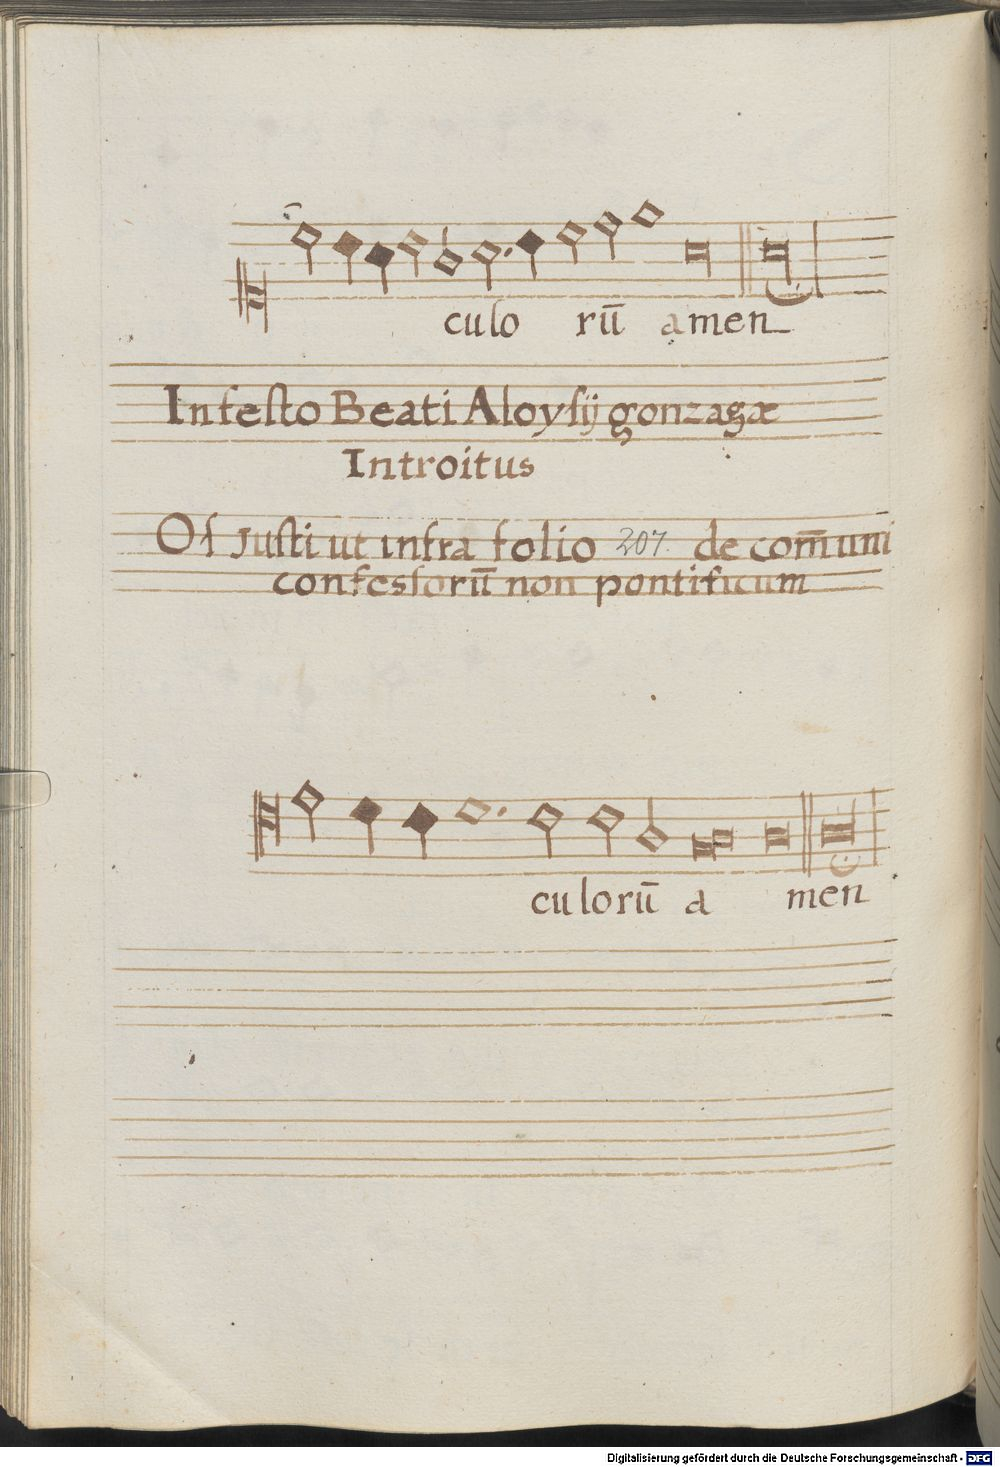 culo rū amen
In festo Beati Aloysij gonzagæ
Introitus
Os Justi ut infra folio 207. de com̄uni
confessorū non pontificum
culorū a men
Digitalisierung gefördert durch die Deutsche Forschungsgemeinschaft - DFG